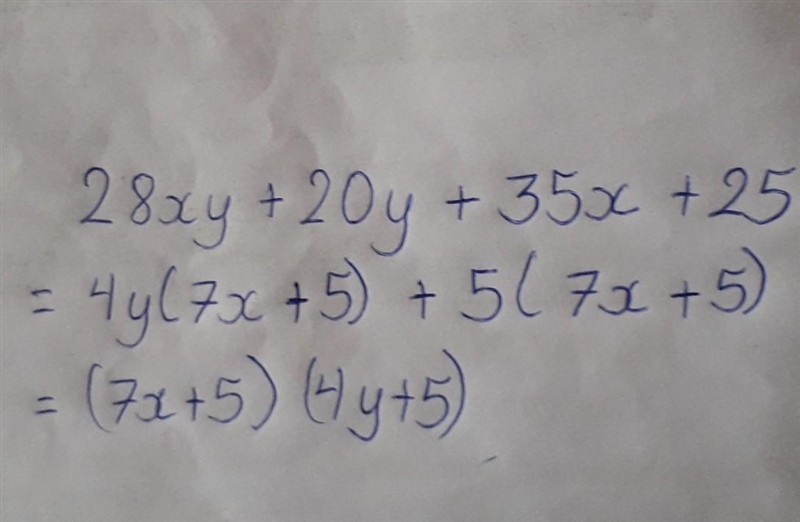 28xy + 20y + 35x + 25
= 4y(7x + 5) + 5( 7x + 5)
= (7x+5) (4y+5)